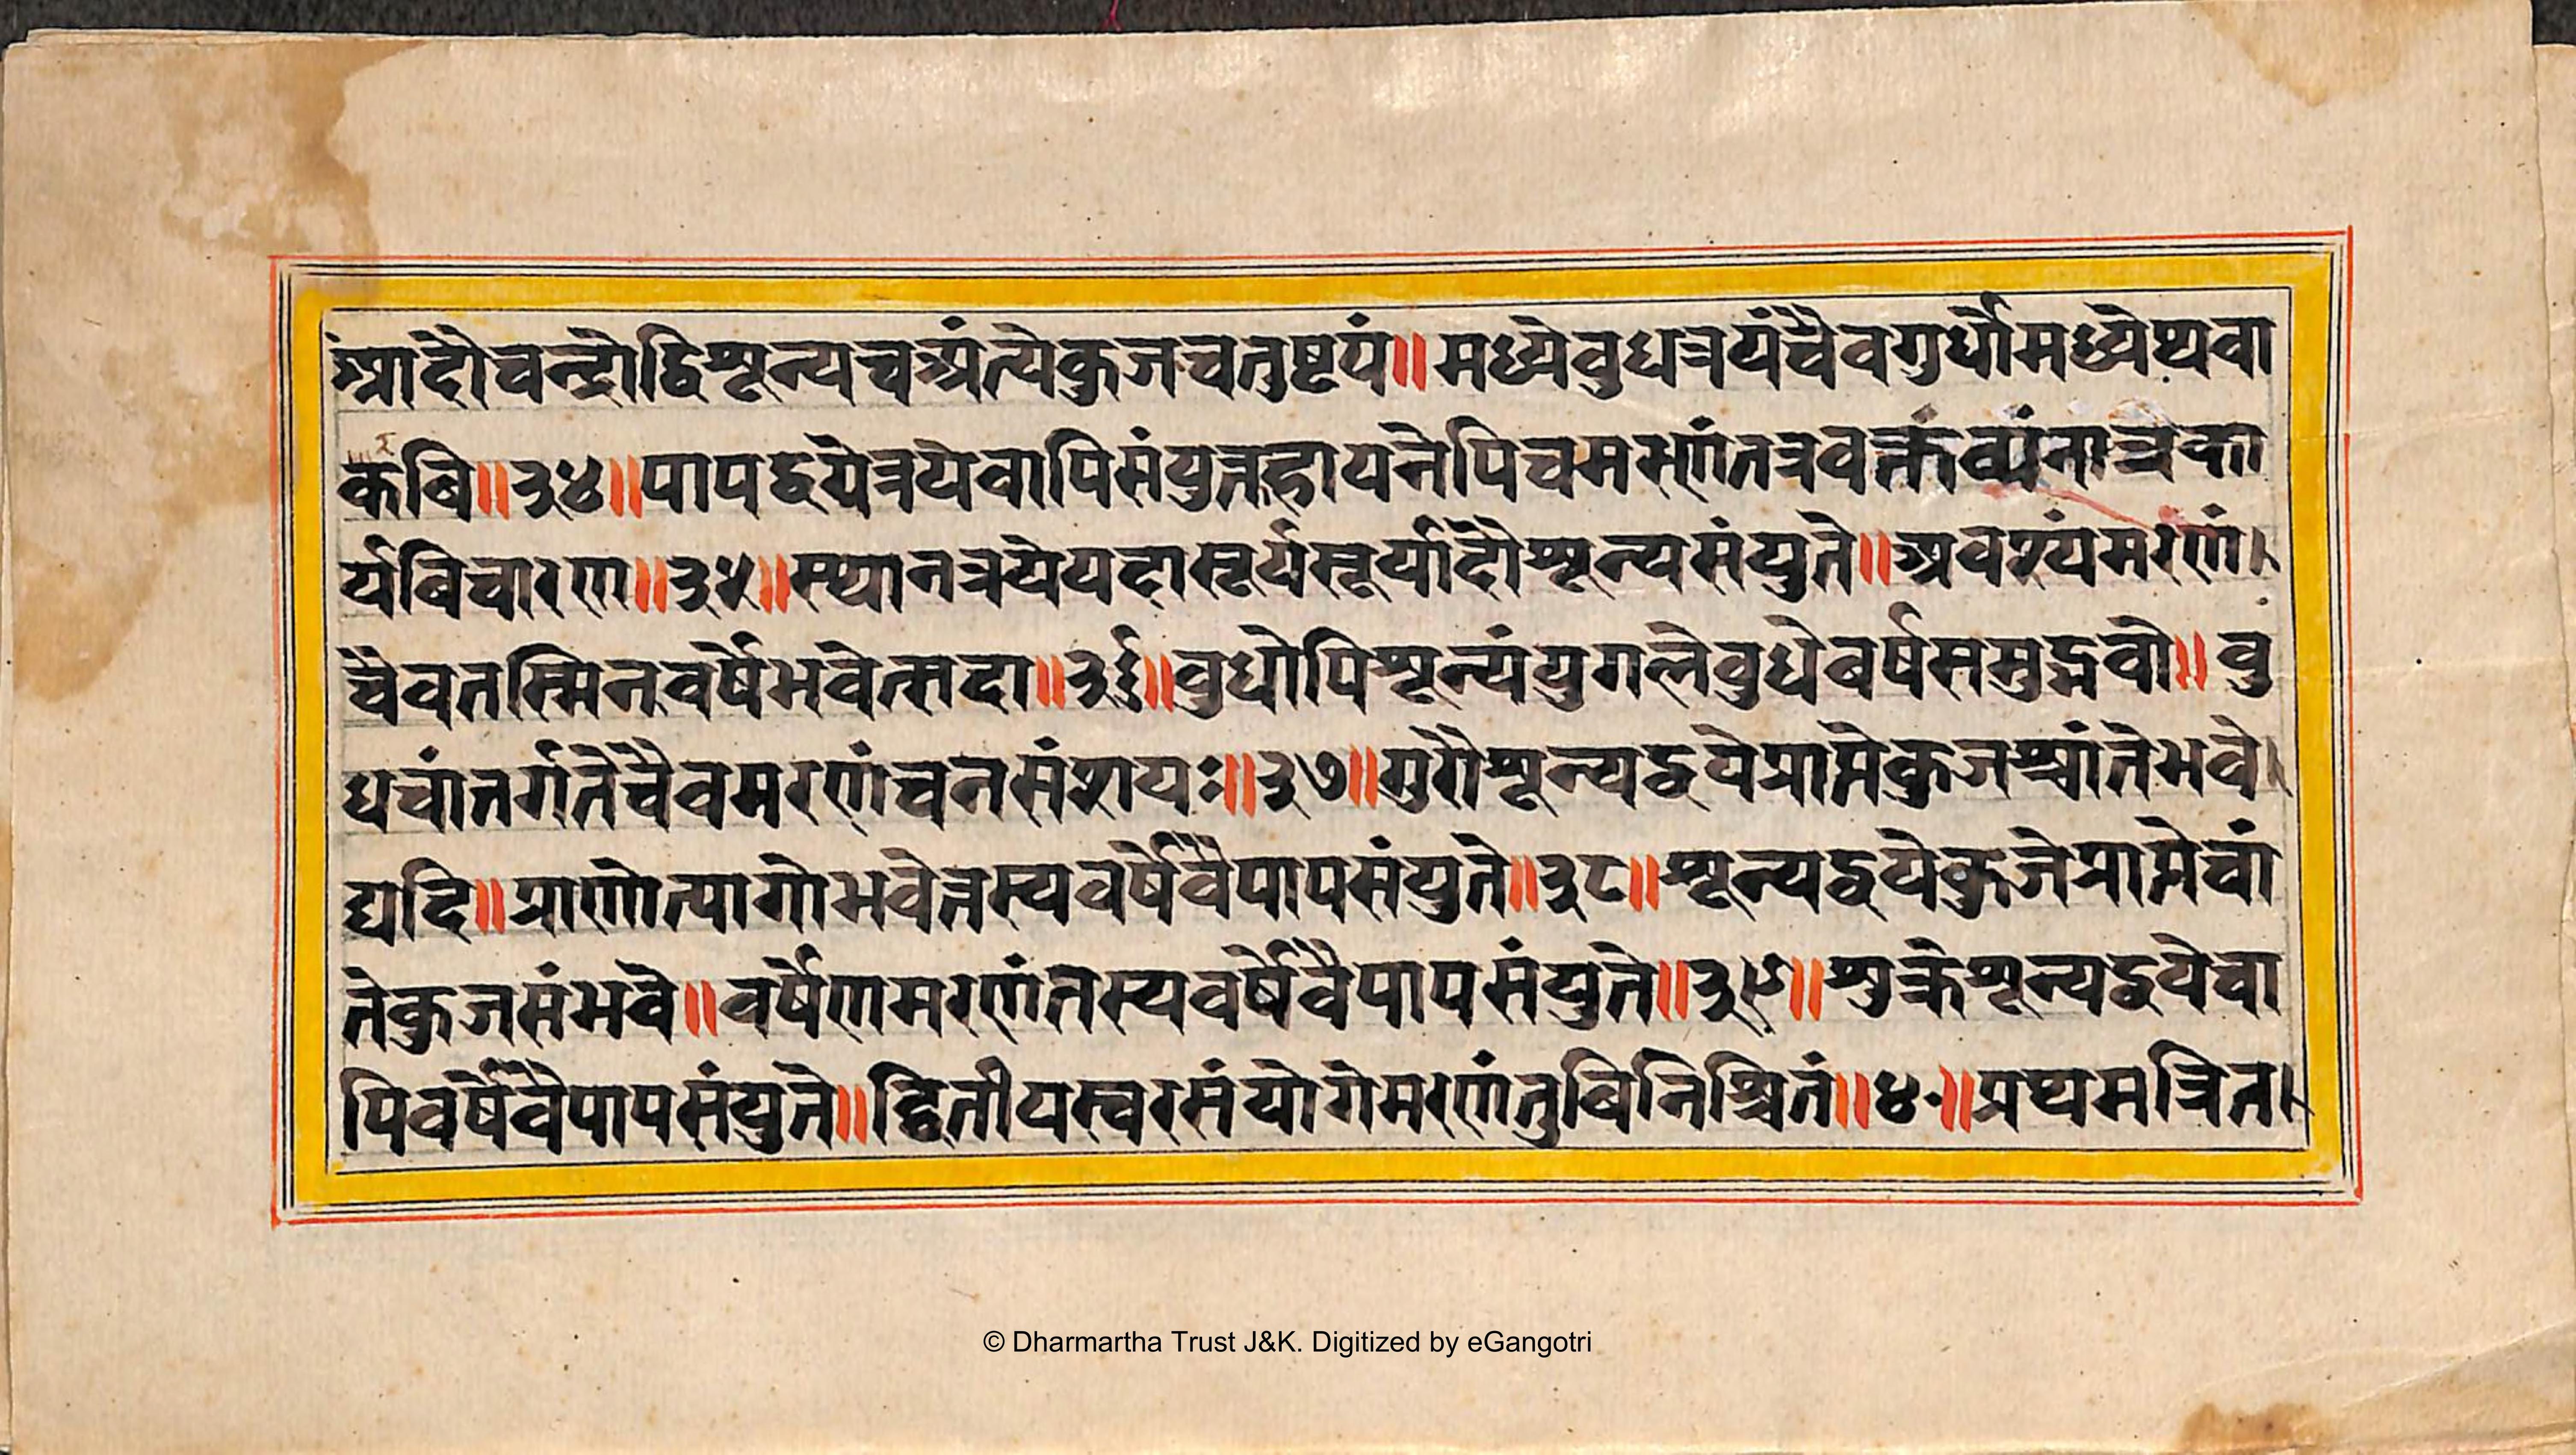 आदौचन्द्रोद्विशून्यचअंत्येकुजचतुष्टयं॥मध्येवुधत्रयंचैवगुर्धोमध्येथवा
कबि॥३४॥पापद्वयेत्रयेवापिसंयुक्तहायनेपिचममरणंतत्रवक्तव्यंनात्रका
र्यबिचारणा॥३५॥स्थानत्रयेयदासूर्यसूर्यादौशून्यसंयुते॥अवश्यंमरणं
चैवतस्मिनवर्षेभवेत्सदा॥३६॥वुधोपिशून्यंयुगलेवुधेबर्षसमुद्भवो॥वु
धचांतर्गतेचैवमरणंचनसंशयः॥३७॥गुरौशून्यद्वयेप्राप्तेकुजश्चांतेभवे
द्यदि॥प्राणोत्यागोभवेत्तस्यवर्षेवैपापसंयुते॥३८॥शून्यद्वयेकुजेप्राप्तेचां
तेकुजसंभवे॥वर्षेणमरणंतस्यवर्षेवैपापसंयुते॥३९॥शुक्रेशून्यद्वयेवा
पिवर्षेवैपापसंयुते॥द्वितीयस्वरसंयोगेमरणंतुबिनिश्चितं॥४०॥प्रथमत्रित
© Dharmartha Trust J&K. Digitized by eGangotri